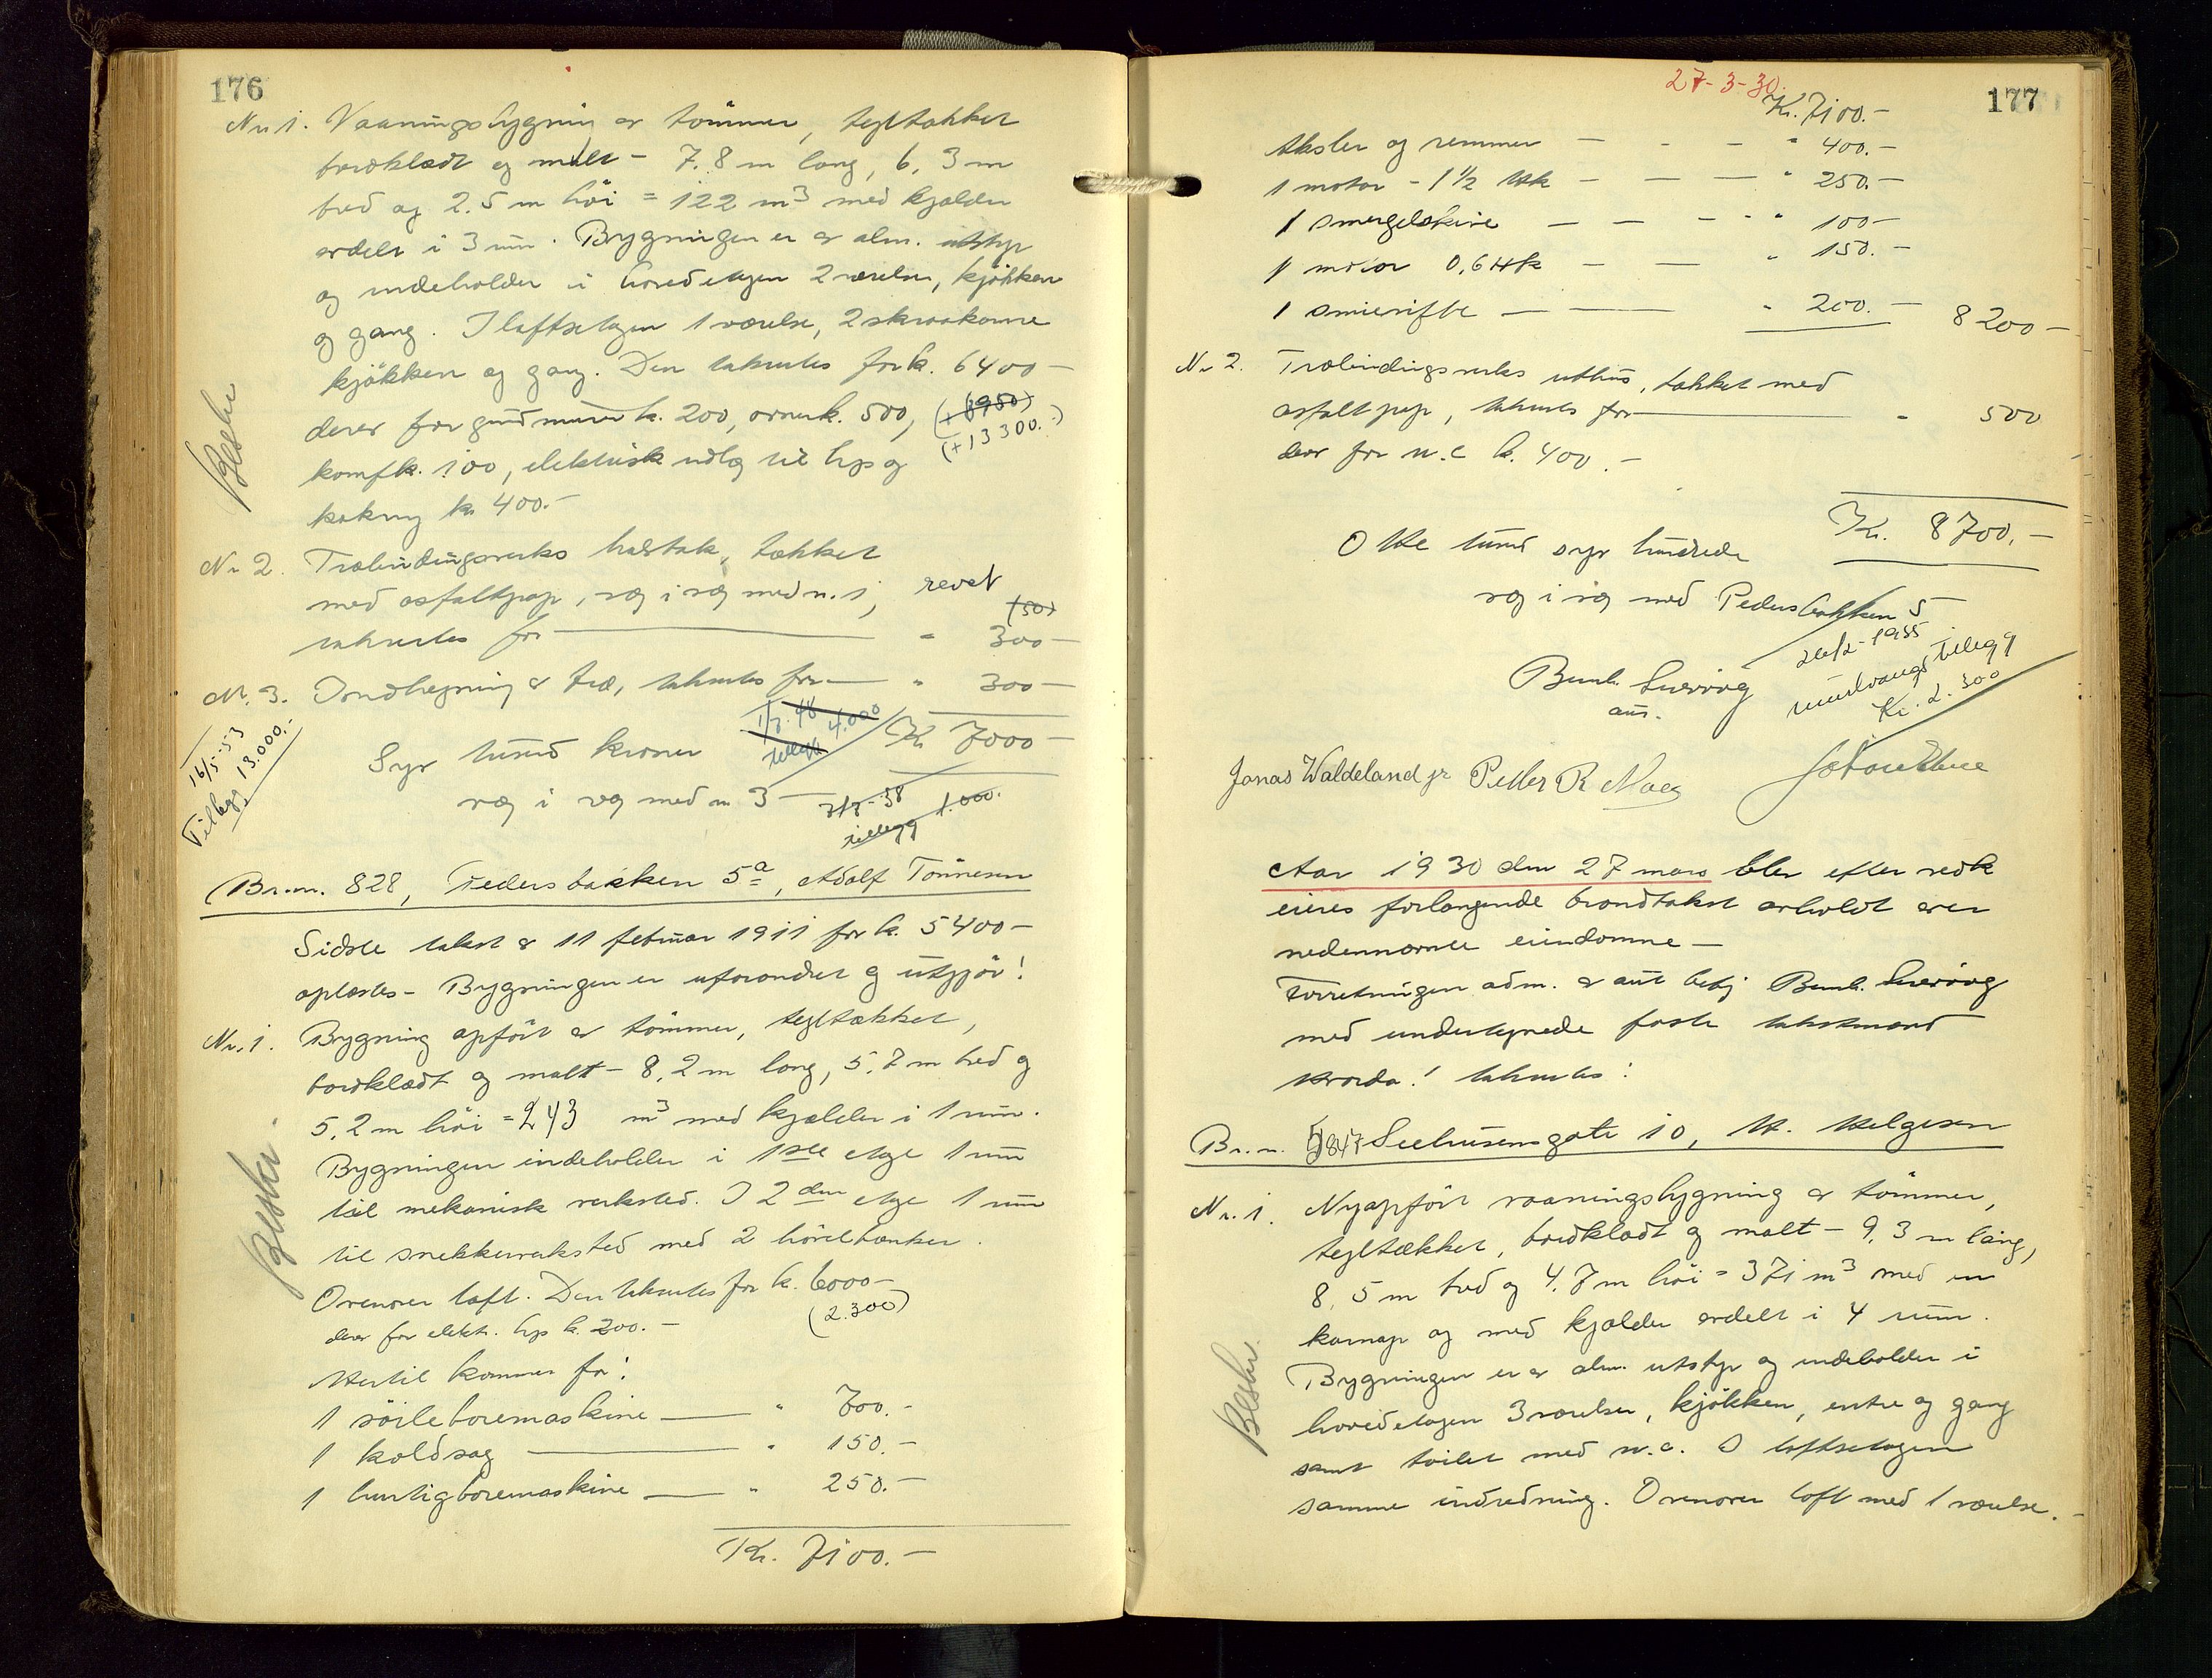 176
Nr 1. Vaaningsbygning av tömmer, tegltækket
bordklædt og malt - 7.8 m lang, 6,3 m
bred og 2.5 m höi = 122 m³ med kjælder
avdelt i 3 rum. Bygningen er av alm. utstyr
og indeholder i hovedetagen 2 værelser, kjökken
og gang. I loftsetagen 1 værelse, 2 skraakammer
kjökken og gang. Den takseres for k. 6400 -
derav for grundmuren k. 200, ovner k. 500, (+ 6950)
(+ 13300.-)
komf k. 100, elektrisk indlæg til lys og
kokning kr 400.-
Besku
Nr 2. Træbindingsverks halvtak, tækket
med asfaltpap, væg i væg med n. 1, revet
(50)
takseres for — " 300 -
Nr. 3. Indhegning av træ, takseres for — " 300 -
16/5-53
Tillegg 13.000.-
1/7. 48
tillegg 4.000
Kr 7000 -
Syv tusend kroner
væg i væg med n 3 -
3/8-38
tillegg 1.000.
Br.n. 828, Pedersbakken 5a, Adolf Tönnesen
Sidste takst av 11 februar 1911 for k. 5400 -
oplæstes - Bygningen er uforandret og utgjör!
Nr. 1. Bygning opfört av tömmer, tegltækket,
bordklædt og malt - 8,2 m lang, 5,7 m bred og
5,2 m höi = 243 m³ med kjælder i 1 rum.
Bygningen indeholder i 1ste etage 1 rum
til mekanisk verksted. I 2den etage 1 rum
til snekkerverksted med 2 hövelbænker.
Ovenover loft. Den takseres for k. 6000 -
(2.300)
derav for elektr. lys k. 200. -
Besku.
Hertil kommer for:
1 söileboremaskine — " 700.-
1 koldsag — " 150.-
1 hurtigboremaskine — " 250.-
Kr. 7100.-
27-3-30.
177
Kr. 7100.-
Aksler og remmer — - — " 400.-
1 motor - 1 ½ Hk — — — " 250.-
1 smergelskive — — - " 100 -
1 motor 0,6 Hk — — " 150.-
1 smievifte — — " 200.- 8200 -
Nr 2. Træbindingsverks uthus, tækket med
asfaltpap, takseres for — " 500
derav for w.c k. 400.-
Kr. 8700.-
Otte tusend syv hundrede
væg i væg med Pedersbakken 5
26/2-1955
tillegg
Kr. 2.300
Bernh. Lervåg
aut.
Jonas Waldeland jr Petter R Moe
Aar 1930 den 27 mars blev efter vedk
eieres forlangende brandtakst avholdt over
nedennævnte eiendomme -
Forretningen adm. av aut betj Bernh. Lervåg
med undertegnede faste takstmænd
Hvorda! takseres:
Br. n. 847 Seehusensgate 10, H. Helgesen
Nr. 1. Nyopfört vaaningsbygning av tömmer,
tegltækket, bordklædt og malt - 9,3 m lang,
8,5 m bred og 4.7 m höi = 371 m³ med en
karnap og med kjælder avdelt i 4 rum.
Bygningen er av alm. utstyr og indeholder i
hovedetagen 3 værelser, kjökken, entre og gang
samt toilet med w.c. I loftsetagen
samme indredning. Ovenover loft med 1 værelse. -
Besku.